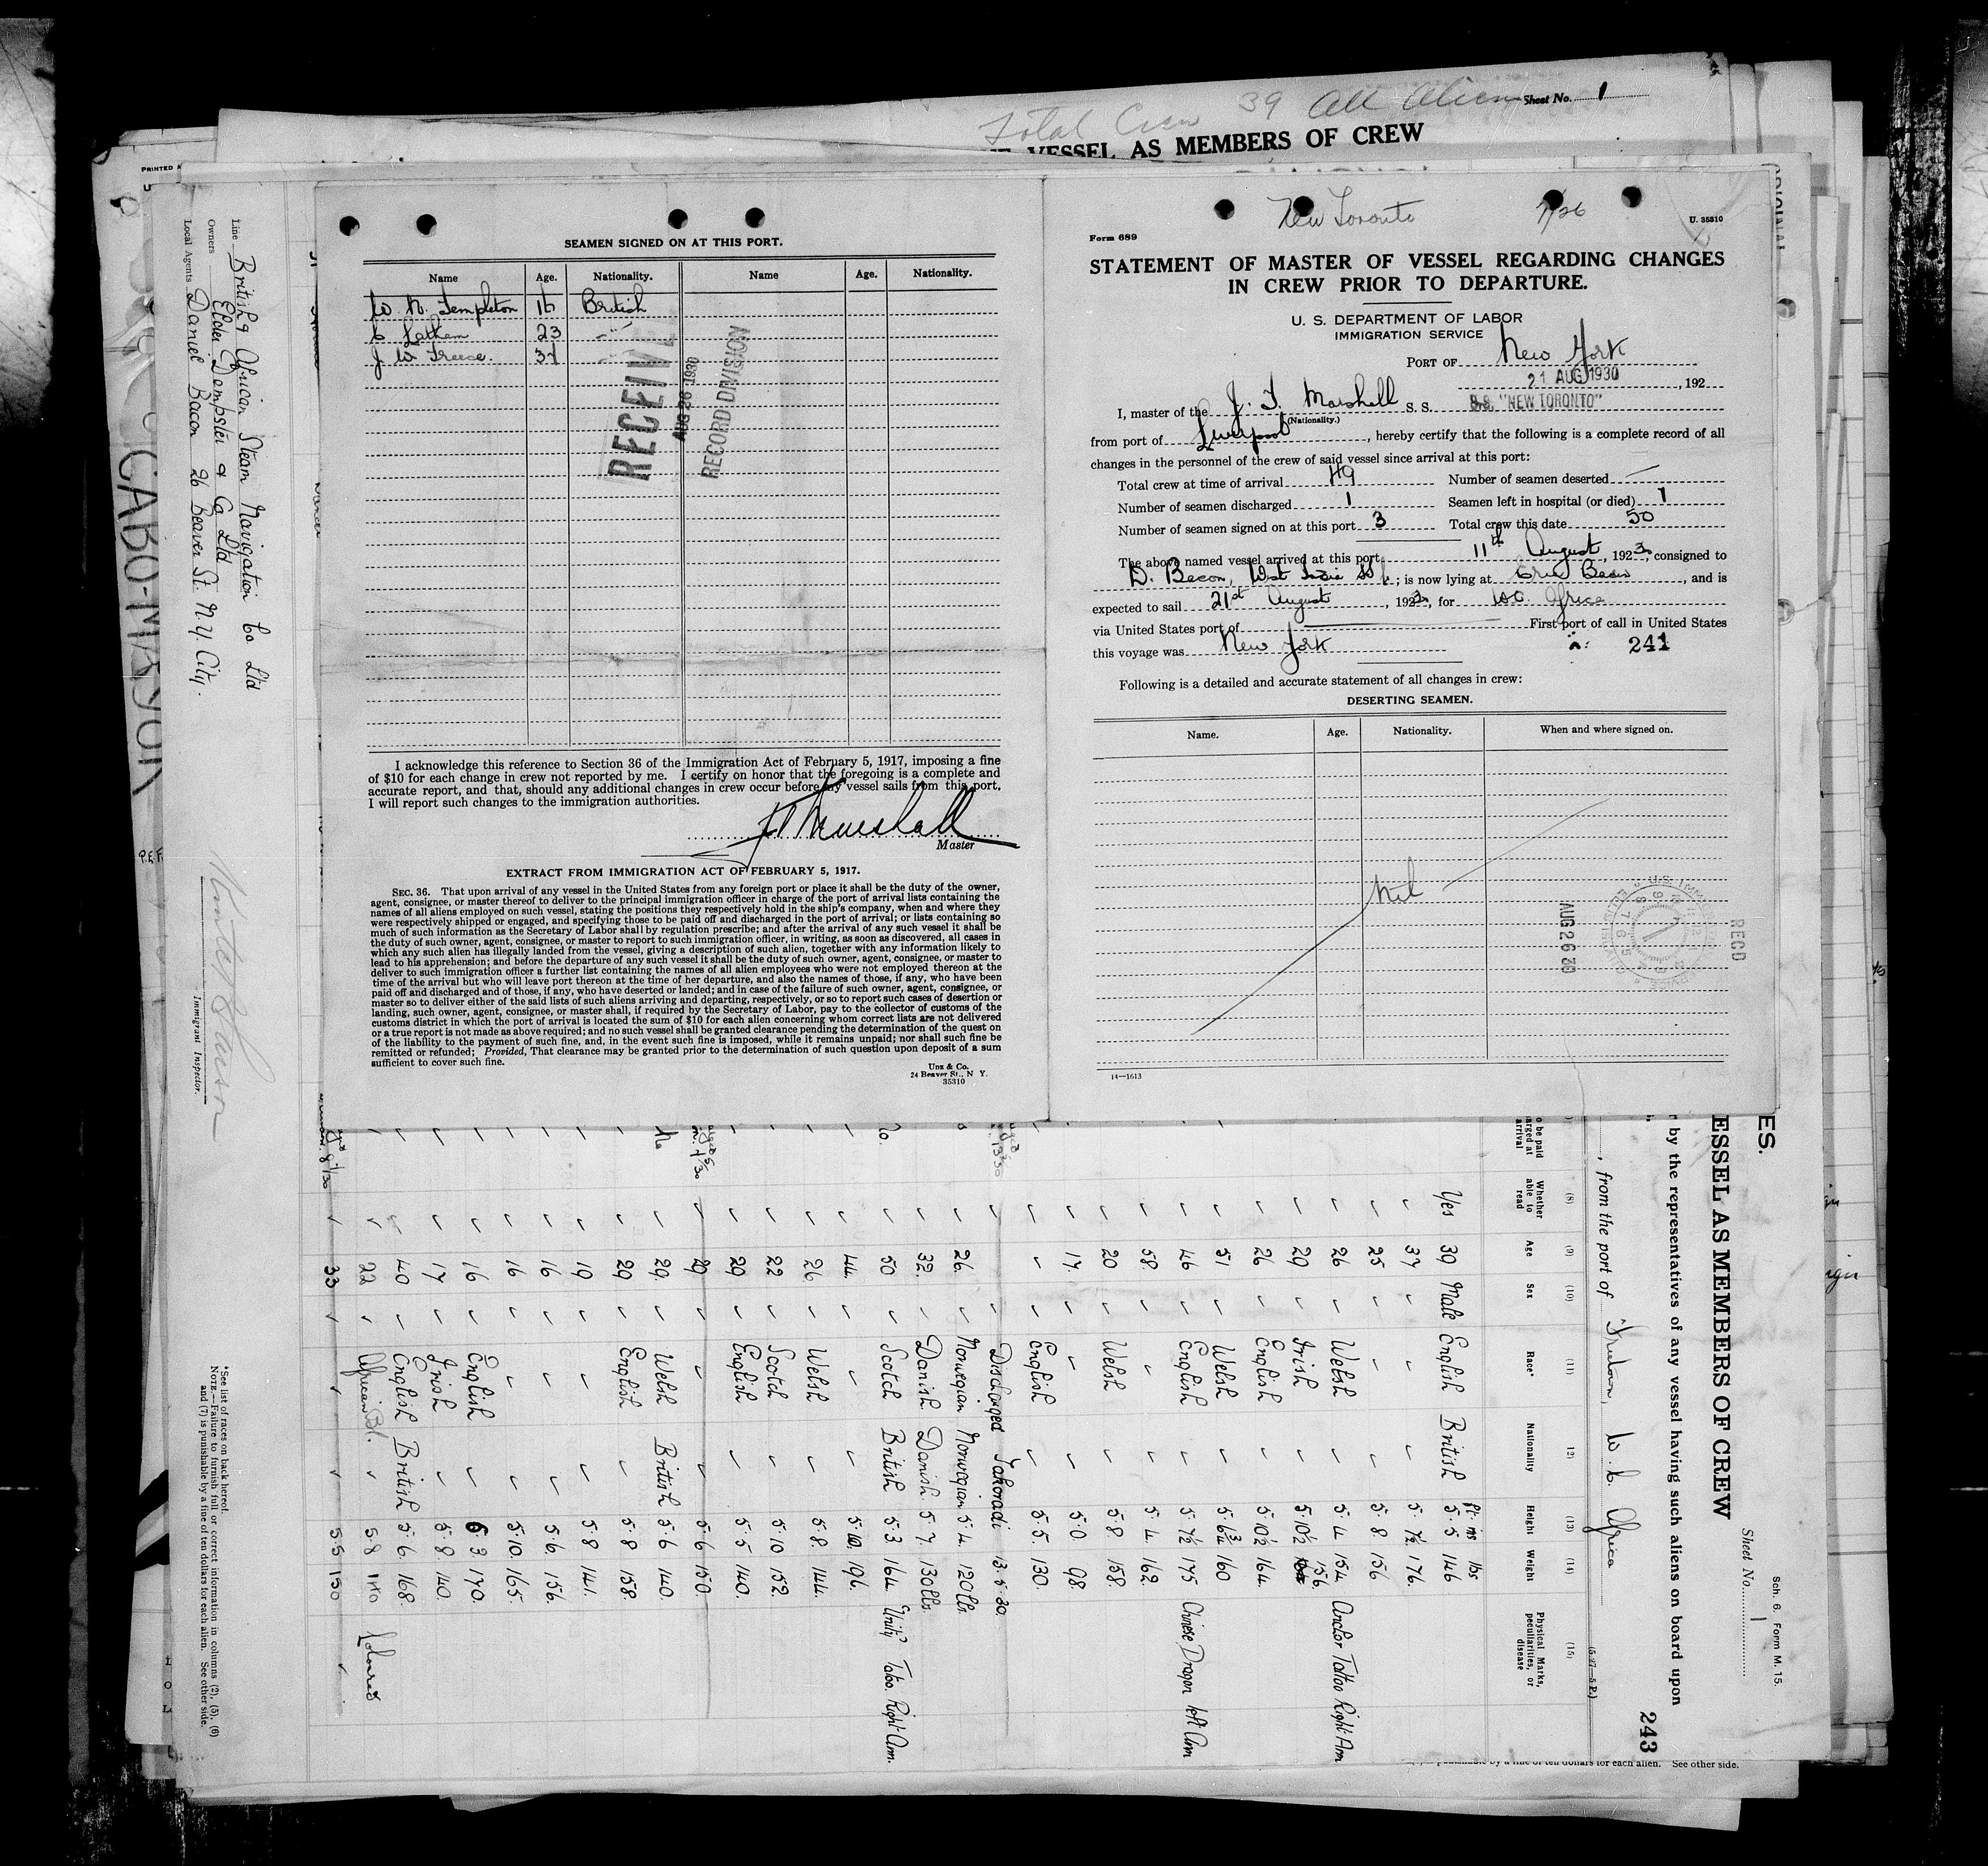 Total Crew 39 All Aliens
Sheet No. 1
VESSEL AS MEMBERS OF CREW
SEAMEN SIGNED ON AT THIS PORT.
Name Age. Nationality. Name Age. Nationality.
W. N. Templeton 16 British
C Lathem 23 〃
J. W. Treece. 37
RECEIVED
AUG 26 1930
RECORD DIVISION
I acknowledge this reference to Section 36 of the Immigration Act of February 5, 1917, imposing a fine
of $10 for each change in crew not reported by me. I certify on honor that the foregoing is a complete and
accurate report, and that, should any additional changes in crew occur before my vessel sails from this port,
I will report such changes to the immigration authorities.
Master
EXTRACT FROM IMMIGRATION ACT OF FEBRUARY 5, 1917.
SEC. 36. That upon arrival of any vessel in the United States from any foreign port or place it shall be the duty of the owner,
agent, consignee, or master thereof to deliver to the principal immigration officer in charge of the port of arrival lists containing the
names of all aliens employed on such vessel, stating the positions they respectively hold in the ship's company, when and where they
were respectively shipped or engaged, and specifying those to be paid off and discharged in the port of arrival; or lists containing so
much of such information as the Secretary of Labor shall by regulation prescribe; and after the arrival of any such vessel it shall be
the duty of such owner, agent, consignee, or master to report to such immigration officer, in writing, as soon as discovered, all cases in
which any such alien has illegally landed from the vessel, giving a description of such alien, together with any information likely to
lead to his apprehension; and before the departure of any such vessel it shall be the duty of such owner, agent, consignee, or master to
deliver to such immigration officer a further list containing the names of all alien employees who were not employed thereon at the
time of the arrival but who will leave port thereon at the time of her departure, and also the names of those, if any, who have been
paid off and discharged and of those, if any, who have deserted or landed; and in case of the failure of such owner, agent, consignee, or
master so to deliver either of the said lists of such aliens arriving and departing, respectively, or so to report such cases of desertion or
landing, such owner, agent, consignee, or master shall, if required by the Secretary of Labor, pay to the collector of customs of the
customs district in which the port of arrival is located the sum of $10 for each alien concerning whom correct lists are not delivered
or a true report is not made as above required; and no such vessel shall be granted clearance pending the determination of the quest on
of the liability to the payment of such fine, and, in the event such fine is imposed, while it remains unpaid; nor shall such fine be
remitted or refunded; Provided, That clearance may be granted prior to the determination of such question upon deposit of a sum
sufficient to cover such fine.
Unz & Co.
24 Beaver St., N Y.
35310
New Toronto
U. 35310
Form 689
STATEMENT OF MASTER OF VESSEL REGARDING CHANGES
IN CREW PRIOR TO DEPARTURE.
U. S. DEPARTMENT OF LABOR
IMMIGRATION SERVICE
PORT OF New York
21 AUG 1930, 192
I, master of the J. T. Marshall S. S. S.S. "NEW TORONTO"
(Nationality.)
from port of Liverpool, hereby certify that the following is a complete record of all
changes in the personnel of the crew of said vessel since arrival at this port:
Total crew at time of arrival 49 Number of seamen deserted —
Number of seamen discharged 1 Seamen left in hospital (or died) 1
Number of seamen signed on at this port 3 Total crew this date 50
The above named vessel arrived at this port 11th August, 1930, consigned to
D. Bacon, West India ; is now lying at Erie Basin, and is
expected to sail 21st August, 1930, for W.C. Africa
via United States port of First port of call in United States
this voyage was New York 241
Following is a detailed and accurate statement of all changes in crew:
DESERTING SEAMEN.
Name. Age. Nationality. When and where signed on.
Nil
AUG 26 30
REC'D
14—1613
Line British & African Steam Navigation Co Ltd
Owners Elder Dempster & Co Ltd
Local Agents Daniel Bacon 26 Beaver St. N.Y. City.
Immigrant Inspector.
CABO-MAYOR
ES.
Sch. 6. Form M. 15.
Sheet No. 1
ESSEL AS MEMBERS OF CREW
by the representatives of any vessel having such aliens on board upon
243
, from the port of Freetown, W. C. Africa
(8) (9) (10) (11) (12) (13) (14) (15)
Whether able to read Age Sex Race* Nationality Height Weight Physical Marks, peculiarities, or disease
ft. ins lbs
Yes 39 Male English British 5·5 146
✓ 37 〃 〃 〃 5·7½ 176.
✓ 25 〃 〃 〃 5·8 156
✓ 26 〃 Welsh 〃 5·4 154 Anchor Tattoo Right Arm
✓ 29 〃 Irish 〃 5·10½ 156.
✓ 26 〃 English 〃 5·10½ 164.
✓ 51 〃 Welsh 〃 5·6¾ 160
✓ 46 〃 English 〃 5·7½ 175 Chinese Dragon left Arm
✓ 58 〃 〃 〃 5·4. 162.
✓ 20 〃 Welsh 〃 5·8 158.
✓ 17. 〃 〃 〃 5·0 98.
✓ 〃 〃 English 〃 5·5. 130.
✓ Discharged Takoradi 13.5.30.
✓ 26. 〃 Norwegian Norwegian 5·4. 120lbs.
✓ 32. 〃 Danish Danish 5·7. 130lbs.
✓ 50 〃 Scotch British 5·3. 164. "Unity" Tatoo. Right Arm.
✓ 44. 〃 〃 〃 5·10. 196.
✓ 26 〃 Welsh 〃 5·8. 144.
✓ 22 〃 Scotch 〃 5·10 152.
✓ 29 〃 English 〃 5·5 140.
✓ 29 〃 〃 〃 5·6 150.
✓ 29. 〃 Welsh British 5·6 140.
✓ 29 〃 English 〃 5·8 158.
✓ 19 〃 〃 〃 5·8 141.
✓ 16 〃 〃 〃 5·6. 156.
✓ 16 〃 〃 〃 5·10. 165.
✓ 16 〃 English 〃 6·3. 170.
✓ 17 〃 Irish 〃 5·8 140.
✓ 40 〃 English British 5·6. 168.
✓ 22 〃 African Bl. 〃 5·8 140 Coloured
✓ 33 〃 〃 〃 5·5 150 〃
*See list of races on back hereof.
NOTE.—Failure to furnish full or correct information in columns (2), (5), (6)
and (7) is punishable by a fine of ten dollars for each alien. See other side.
See other side.